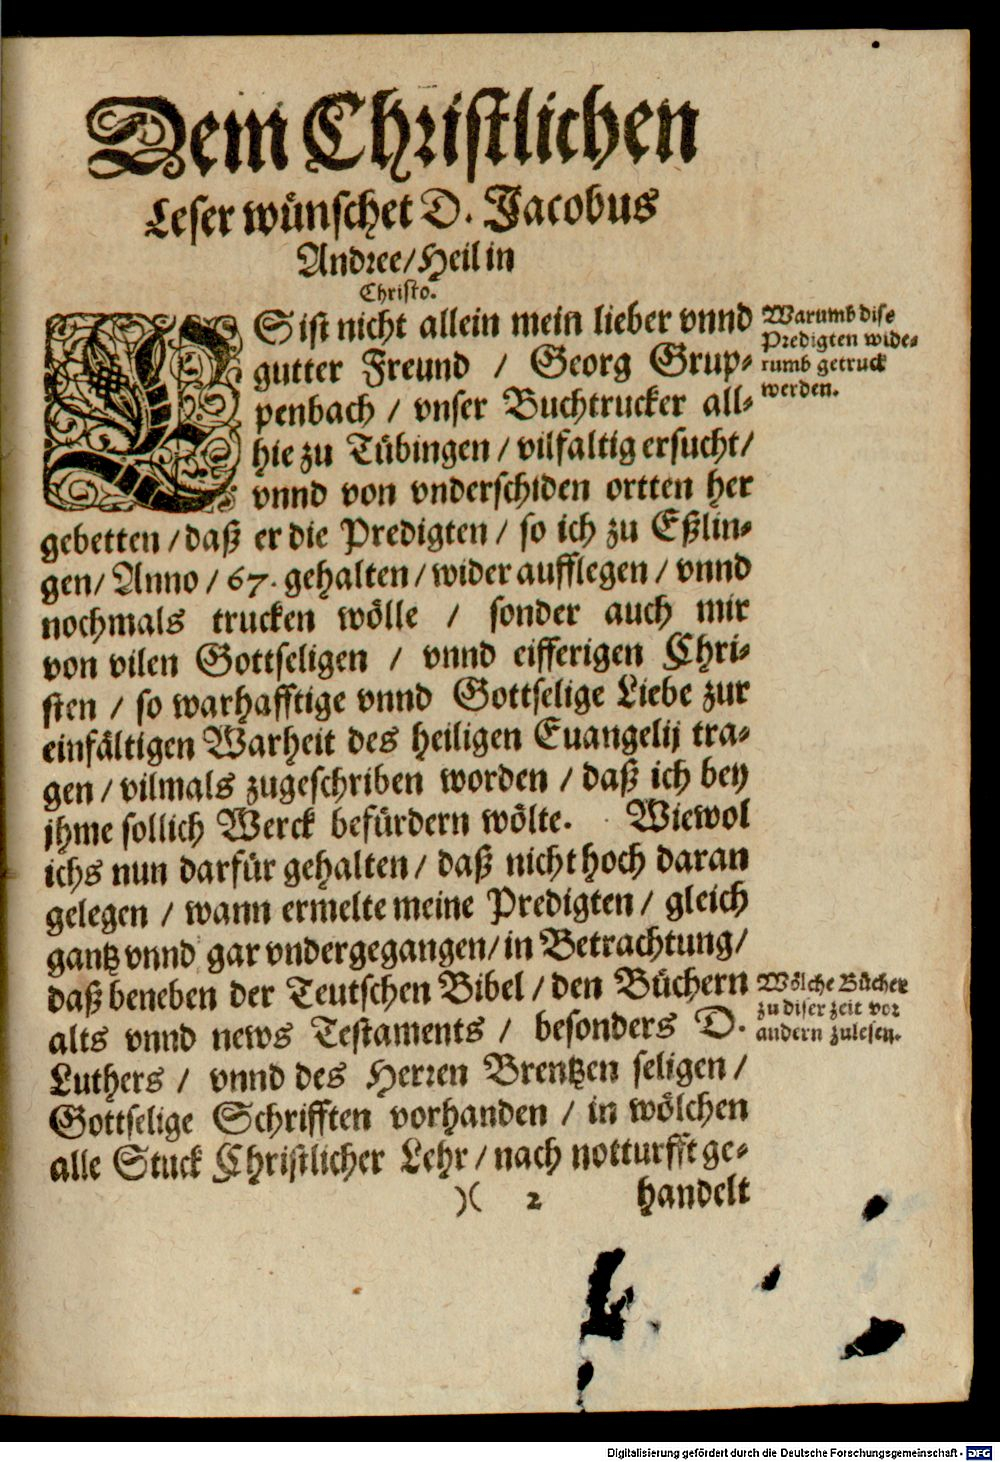 Dem Christlichen
Leser wünschet D. Jacobus
Andree/ Heil in
Christo.
ES ist nicht allein mein lieber vnnd
gutter Freund / Georg Grup-
penbach / vnser Buchtrucker all-
hie zu Tübingen / vilfaltig ersucht/
vnnd von vnderschiden ortten her
gebetten / daß er die Predigten / so ich zu Eßlin-
gen/ Anno / 67. gehalten / wider aufflegen / vnnd
nochmals trucken wölle / sonder auch mir
von vilen Gottseligen / vnnd eifferigen Chri-
sten / so warhafftige vnnd Gottselige Liebe zur
einfältigen Warheit des heiligen Euangelij tra-
gen / vilmals zugeschriben worden / daß ich bey
jhme sollich Werck befürdern wölte. Wiewol
ichs nun darfür gehalten / daß nicht hoch daran
gelegen / wann ermelte meine Predigten / gleich
gantz vnnd gar vndergegangen/ in Betrachtung/
daß beneben der Teutschen Bibel / den Büchern
alts vnnd news Testaments / besonders D.
Luthers / vnnd des Herren Brentzen seligen /
Gottselige Schrifften vorhanden / in wölchen
alle Stuck Christlicher Lehr / nach notturfft ge-
)( 2 handelt
Warumb dise
Predigten wide-
rumb getruck
werden.
Wölche Bücher
zu diser zeit vor
andern zulesen.
Digitalisierung gefördert durch die Deutsche Forschungsgemeinschaft - DFG